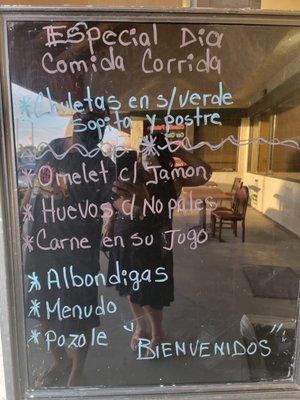 Especial Dia
Comida Corrida
* Chuletas en s/verde
sopita y postre
* Omelet c/ Jamon
* Huevos c/ Nopales
* Carne en su Jugo
* Albondigas
* Menudo
* Pozole
"Bienvenidos"